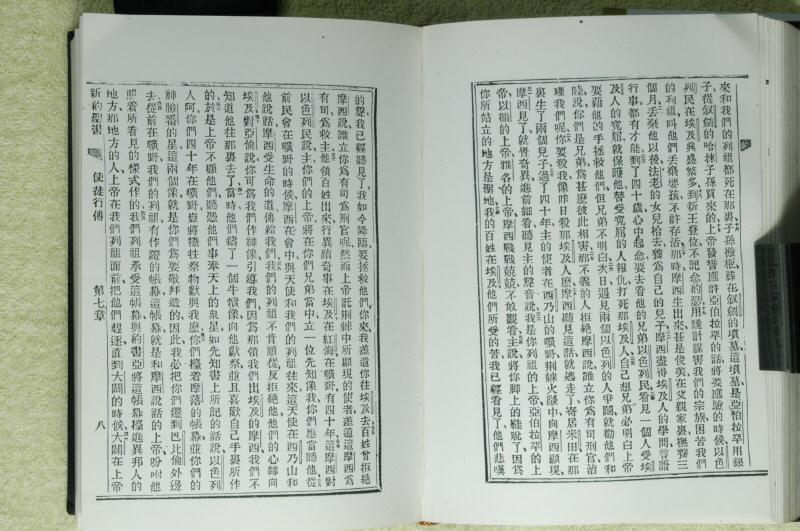 來和我們的列祖都死在那裏子孫搬極葬在敘劍的墳墓這墳墓是亞伯拉罕用銀
子從敘劍的哈抹子孫買來的上帝發誓應許亞伯拉罕的話將要應驗的時候以色
列民在埃及興盛繁多到新王登位不記念的用詭計謀害我們的宗族困苦我們
的列祖叫他們丟棄嬰孩不許存活那時摩西生出來甚是俊美在父親家裏撫養三
個月丟棄他以後法老的女兒拾去養爲自己的兒子摩西盡得埃及人的學問言語
行事都有才能到了四十歲心中起念要去看他的兄弟以色列民看見一個人受埃
及人的寃屈就保護他替受寃屈的人報仇打死那埃及人自己想兄弟必明白上帝
要藉他的手拯救他們但兄弟不明白次日遇見兩個以色列的人爭鬬就勸他們和
睦說你們是兄弟爲甚麼彼此相害那不義的人拒絕摩西說誰立你爲有司刑官治
理我們呢你要殺我像昨日殺那埃及人麼摩西聽見這話就逃走了寄居米田在那
裏生了兩個兒子過了四十年主的使者在西乃山的曠野荆棘火燄中向摩西顯現
摩西見了就覺奇異進前細看聽見主的聲音說我是你列祖的上帝亞伯拉罕的上
帝以撒的上帝雅各的上帝摩西戰戰兢兢不敢觀看主說將你脚上的鞋脫了因爲
你所站立的地方是聖地我的百姓在埃及他們所受的苦我已經看見了他們悲嘆
的聲我已經聽見了我如今降臨要拯救他們你來我差遣你往埃及去百姓曾拒絕
摩西說誰立你爲有司爲刑官呢然而上帝託荆棘中所顯現的使者差遣這摩西爲
有司爲救主他領百姓出來行異蹟奇事在埃及在紅海在曠野有四十年這摩西對
以色列民說主你們的上帝將在你們兄弟當中立一位先知像我你們應當聽他從
前民會在曠野的時候摩西在會中與天使和我們的列祖往來這天使在西乃山和
他說話摩西受生命的道傳給我們我們的列祖不肯順從反拒絕他他們的心轉向
埃及對亞倫說你可爲我們作神像引導我們因爲那領我們出埃及的摩西我們不
知道他往那裏去了當時他們鑄了一個牛犢像向他獻祭並且喜歡自己手裏所作
的於是上帝不顧他們聽憑他們事奉天上的衆星如先知書上所記的話說以色列
人阿你們四十年在曠野豈將犧牲祭物獻與我麼你們擡着摩落的帳幕並你們的
神勝番的星這兩個像就是你們爲要敬拜造的因此我必把你們遷到巴比倫外邊
去從前在曠野我們的列祖有作證的帳幕就是和摩西說話的上帝吩咐他
照着所看見的樣式作的我們列祖承受這帳幕與約書亞將這帳幕擡進異邦人的
地方那地方的人上帝在我們列祖面前把他們趕逐直到大闢的時候大闢在上帝
新約聖書 使徒行傳 第七章 八